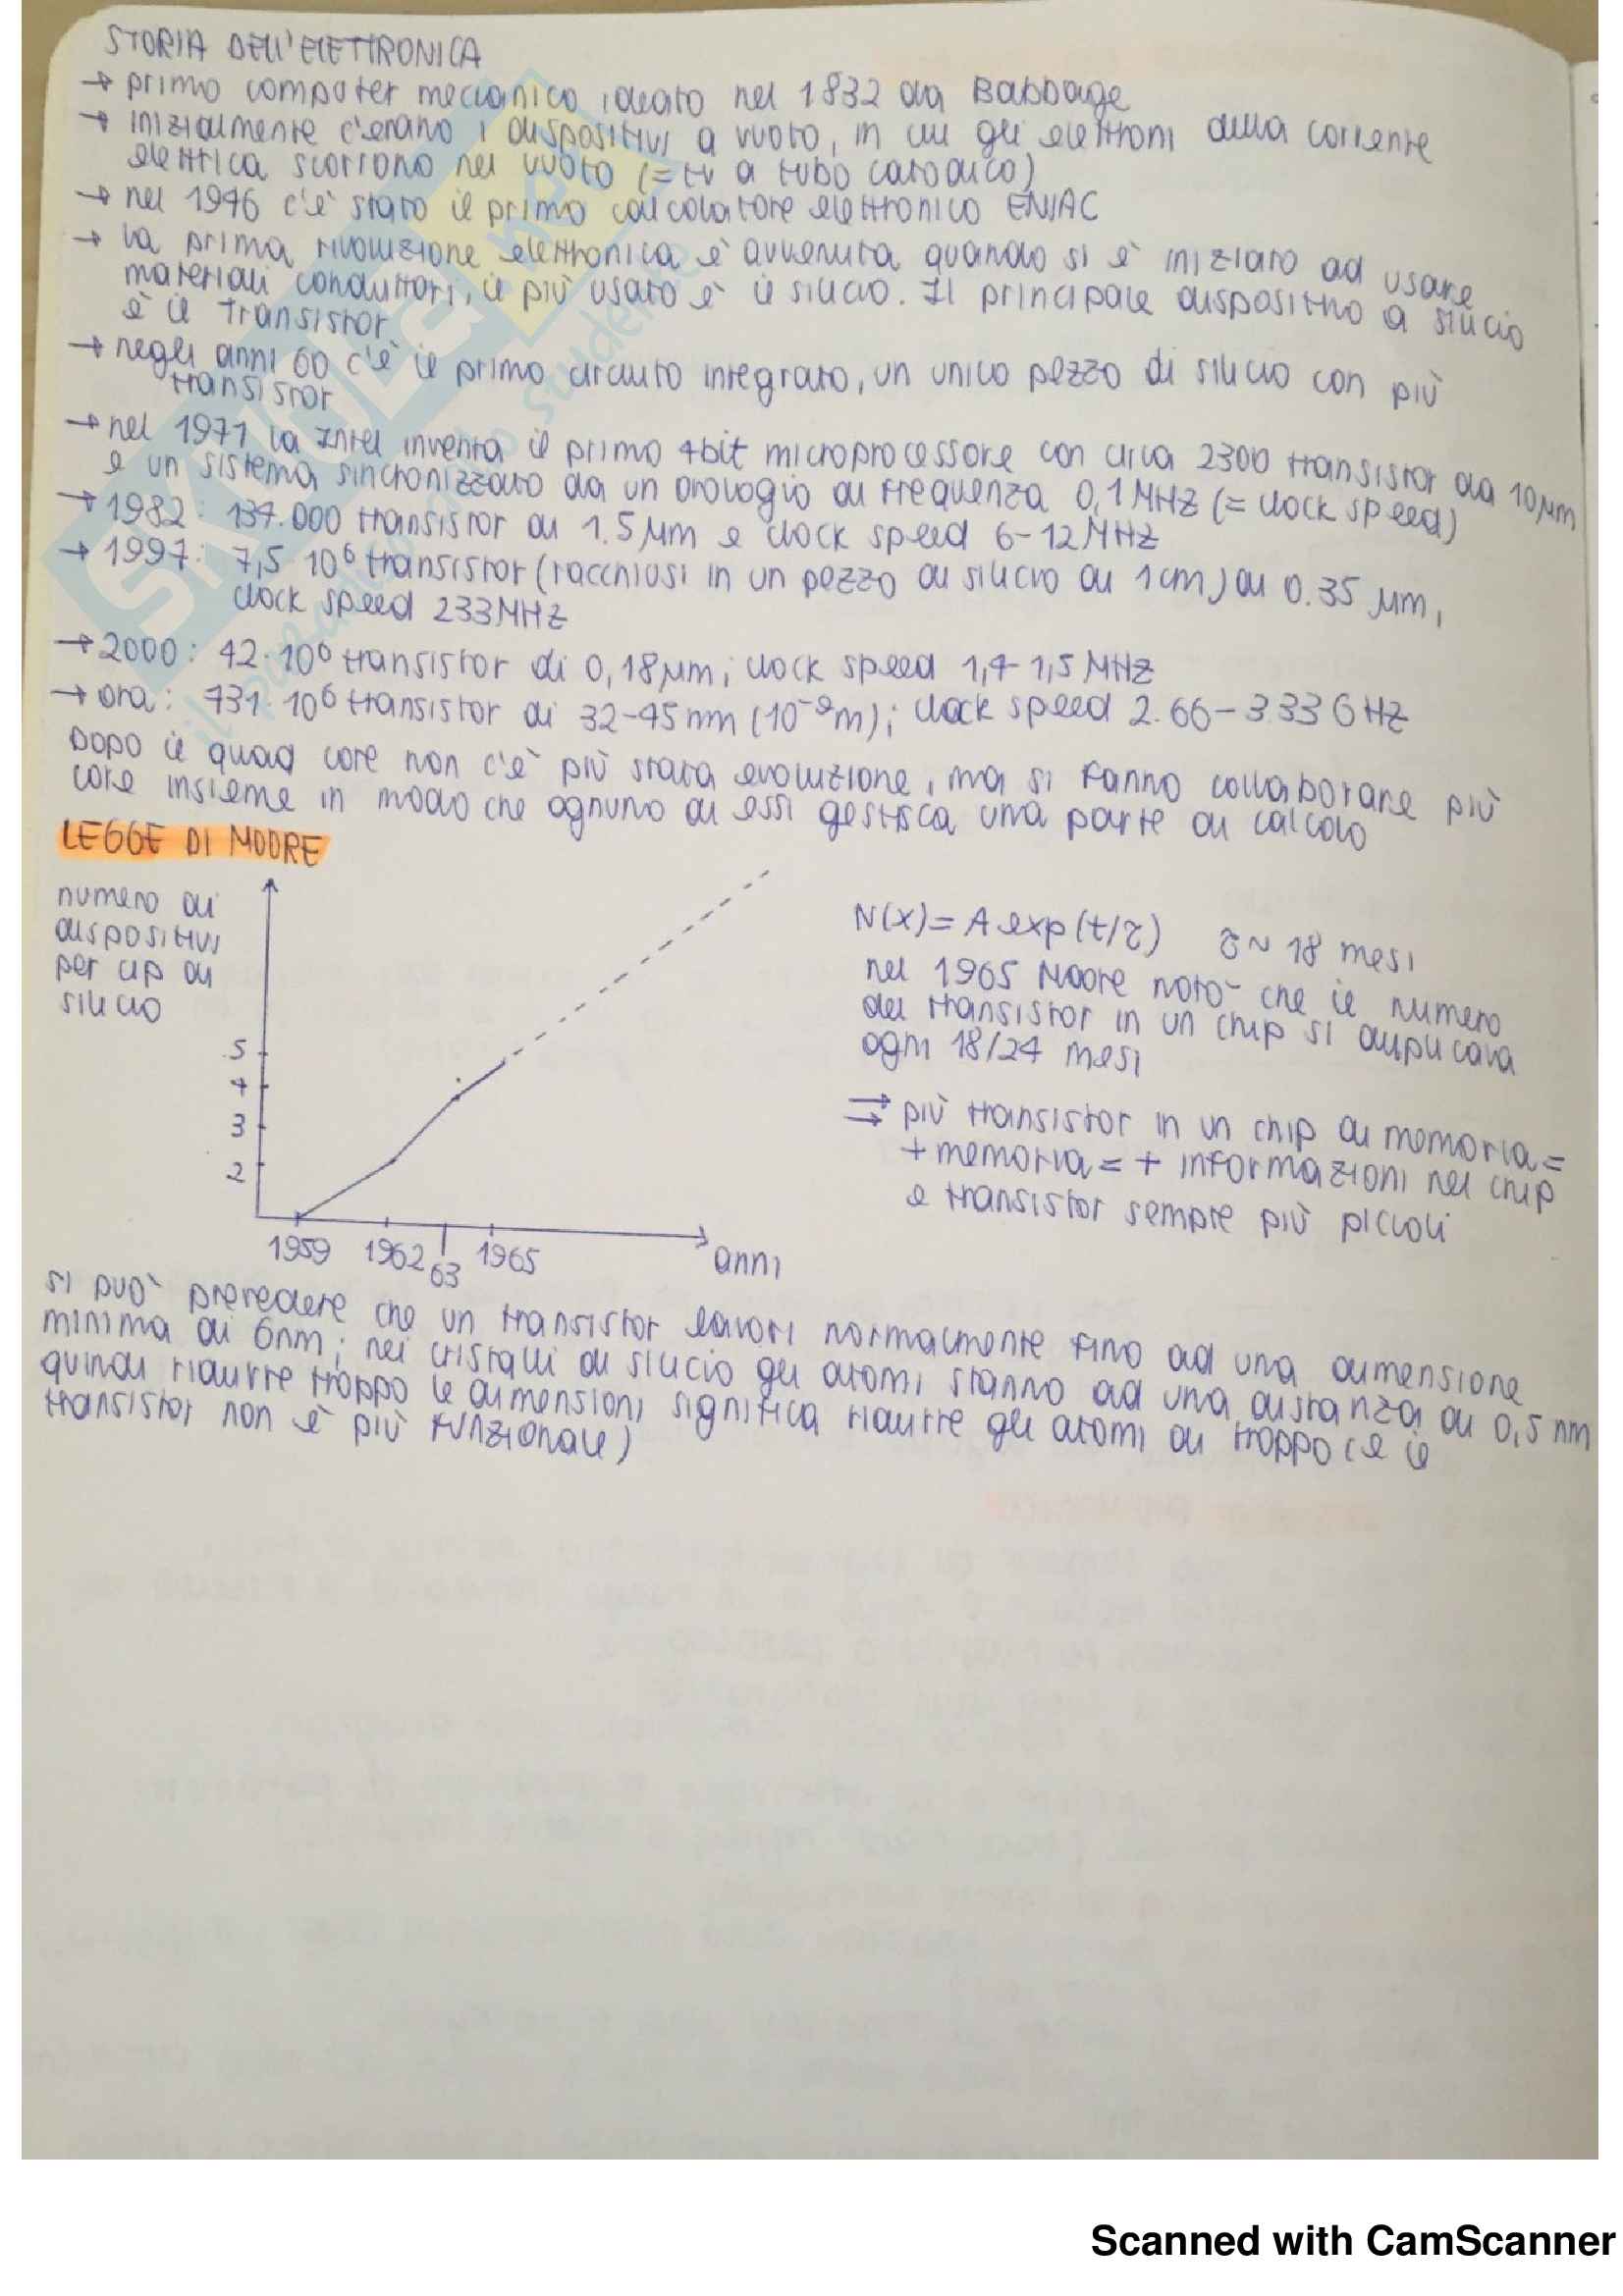 STORIA DELL'ELETTRONICA
→ primo computer meccanico ideato nel 1832 da Babbage
→ inizialmente c'erano i dispositivi a vuoto, in cui gli elettroni della corrente
elettrica scorrono nel vuoto (= tv a tubo catodico)
→ nel 1946 c'è stato il primo calcolatore elettronico ENIAC
→ la prima rivoluzione elettronica è avvenuta quando si è iniziato ad usare
materiali conduttori, il più usato è il silicio. Il principale dispositivo a silicio
è il transistor
→ negli anni 60 c'è il primo circuito integrato, un unico pezzo di silicio con più
transistor
→ nel 1971 la Intel inventa il primo 4bit microprocessore con circa 2300 transistor da 10 μm
e un sistema sincronizzato da un orologio di frequenza 0,1 MHz (= clock speed)
→ 1982: 134.000 transistor di 1.5 μm e clock speed 6-12 MHz
→ 1997: 7,5 10⁶ transistor (racchiusi in un pezzo di silicio di 1cm) di 0.35 μm,
clock speed 233 MHz
→ 2000: 42·10⁶ transistor di 0,18 μm; clock speed 1,4-1,5 MHz
→ ora: 731·10⁶ transistor di 32-45 nm (10⁻⁹m); clock speed 2.66-3.33 GHz
Dopo il quad core non c'è più stata evoluzione, ma si fanno collaborare più
core insieme in modo che ognuno di essi gestisca una parte di calcolo
LEGGE DI MOORE
numero di
dispositivi
per cip di
silicio
5
4
3
2
1959 1962 63 1965 anni
N(x) = A exp(t/τ) τ ~ 18 mesi
nel 1965 Moore notò che il numero
dei transistor in un chip si duplicava
ogni 18/24 mesi
⇒ più transistor in un chip di memoria =
+ memoria = + informazioni nel chip
e transistor sempre più piccoli
si può prevedere che un transistor lavori normalmente fino ad una dimensione
minima di 6nm; nei cristalli di silicio gli atomi stanno ad una distanza di 0,5 nm
quindi ridurre troppo le dimensioni significa ridurre gli atomi di troppo (e il
transistor non è più funzionale)
SKUOLA
Scanned with CamScanner